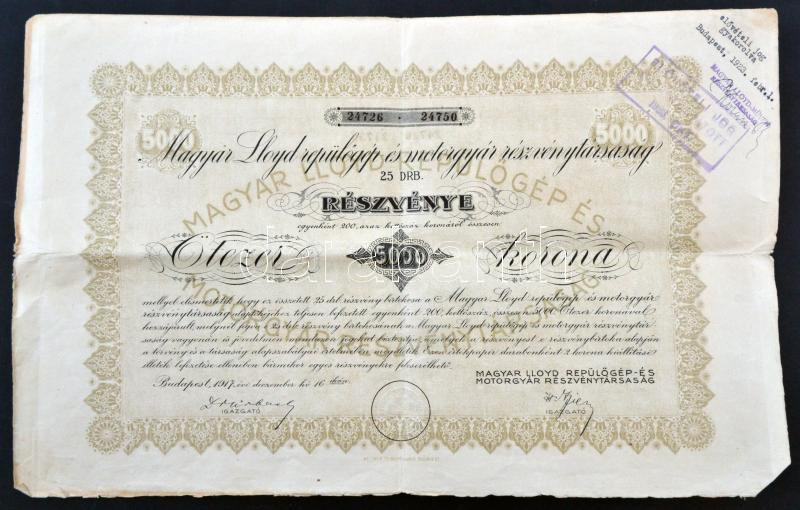 elővételi jog
gyakorolva
Budapest, 1923. febr. 1.
MAGYAR LLOYD
24726 - 24750
5000 5000
Magyar Lloyd repülőgép és motorgyár részvénytársaság
MAGYAR LLOYD REPÜLŐGÉP ÉS
MOTORGYÁR RÉSZVÉNYTÁRSASÁG
25 DRB.
RÉSZVÉNYE
egyenként 200, azaz kettőszáz koronáról összesen
Ötezer 5000 korona
mellyel elismertetik, hogy ez összetett 25 drb. részvény birtokosa a Magyar Lloyd repülőgép és motorgyár
részvénytársaság alaptőkéjéhez teljesen befizetett egyenként 200, kettőszáz, összesen 5000 Ötezer koronával
hozzájárult, melynél fogva a 25 drb. részvény birtokosának a Magyar Lloyd repülőgép és motorgyár részvénytár
saság vagyonán és jövedelmén mindazon jogokat biztosítja, melyek a részvényest e részvény birtoka alapján
a törvény és a társaság alapszabályai értelmében megilletik.
illeték befizetése ellenében bármikor egyes részvényekre felcserélhető.
Budapest, 1917. évi december hó 16
MAGYAR LLOYD REPÜLŐGÉP- ÉS
MOTORGYÁR RÉSZVÉNYTÁRSASÁG
IGAZGATÓ
IGAZGATÓ